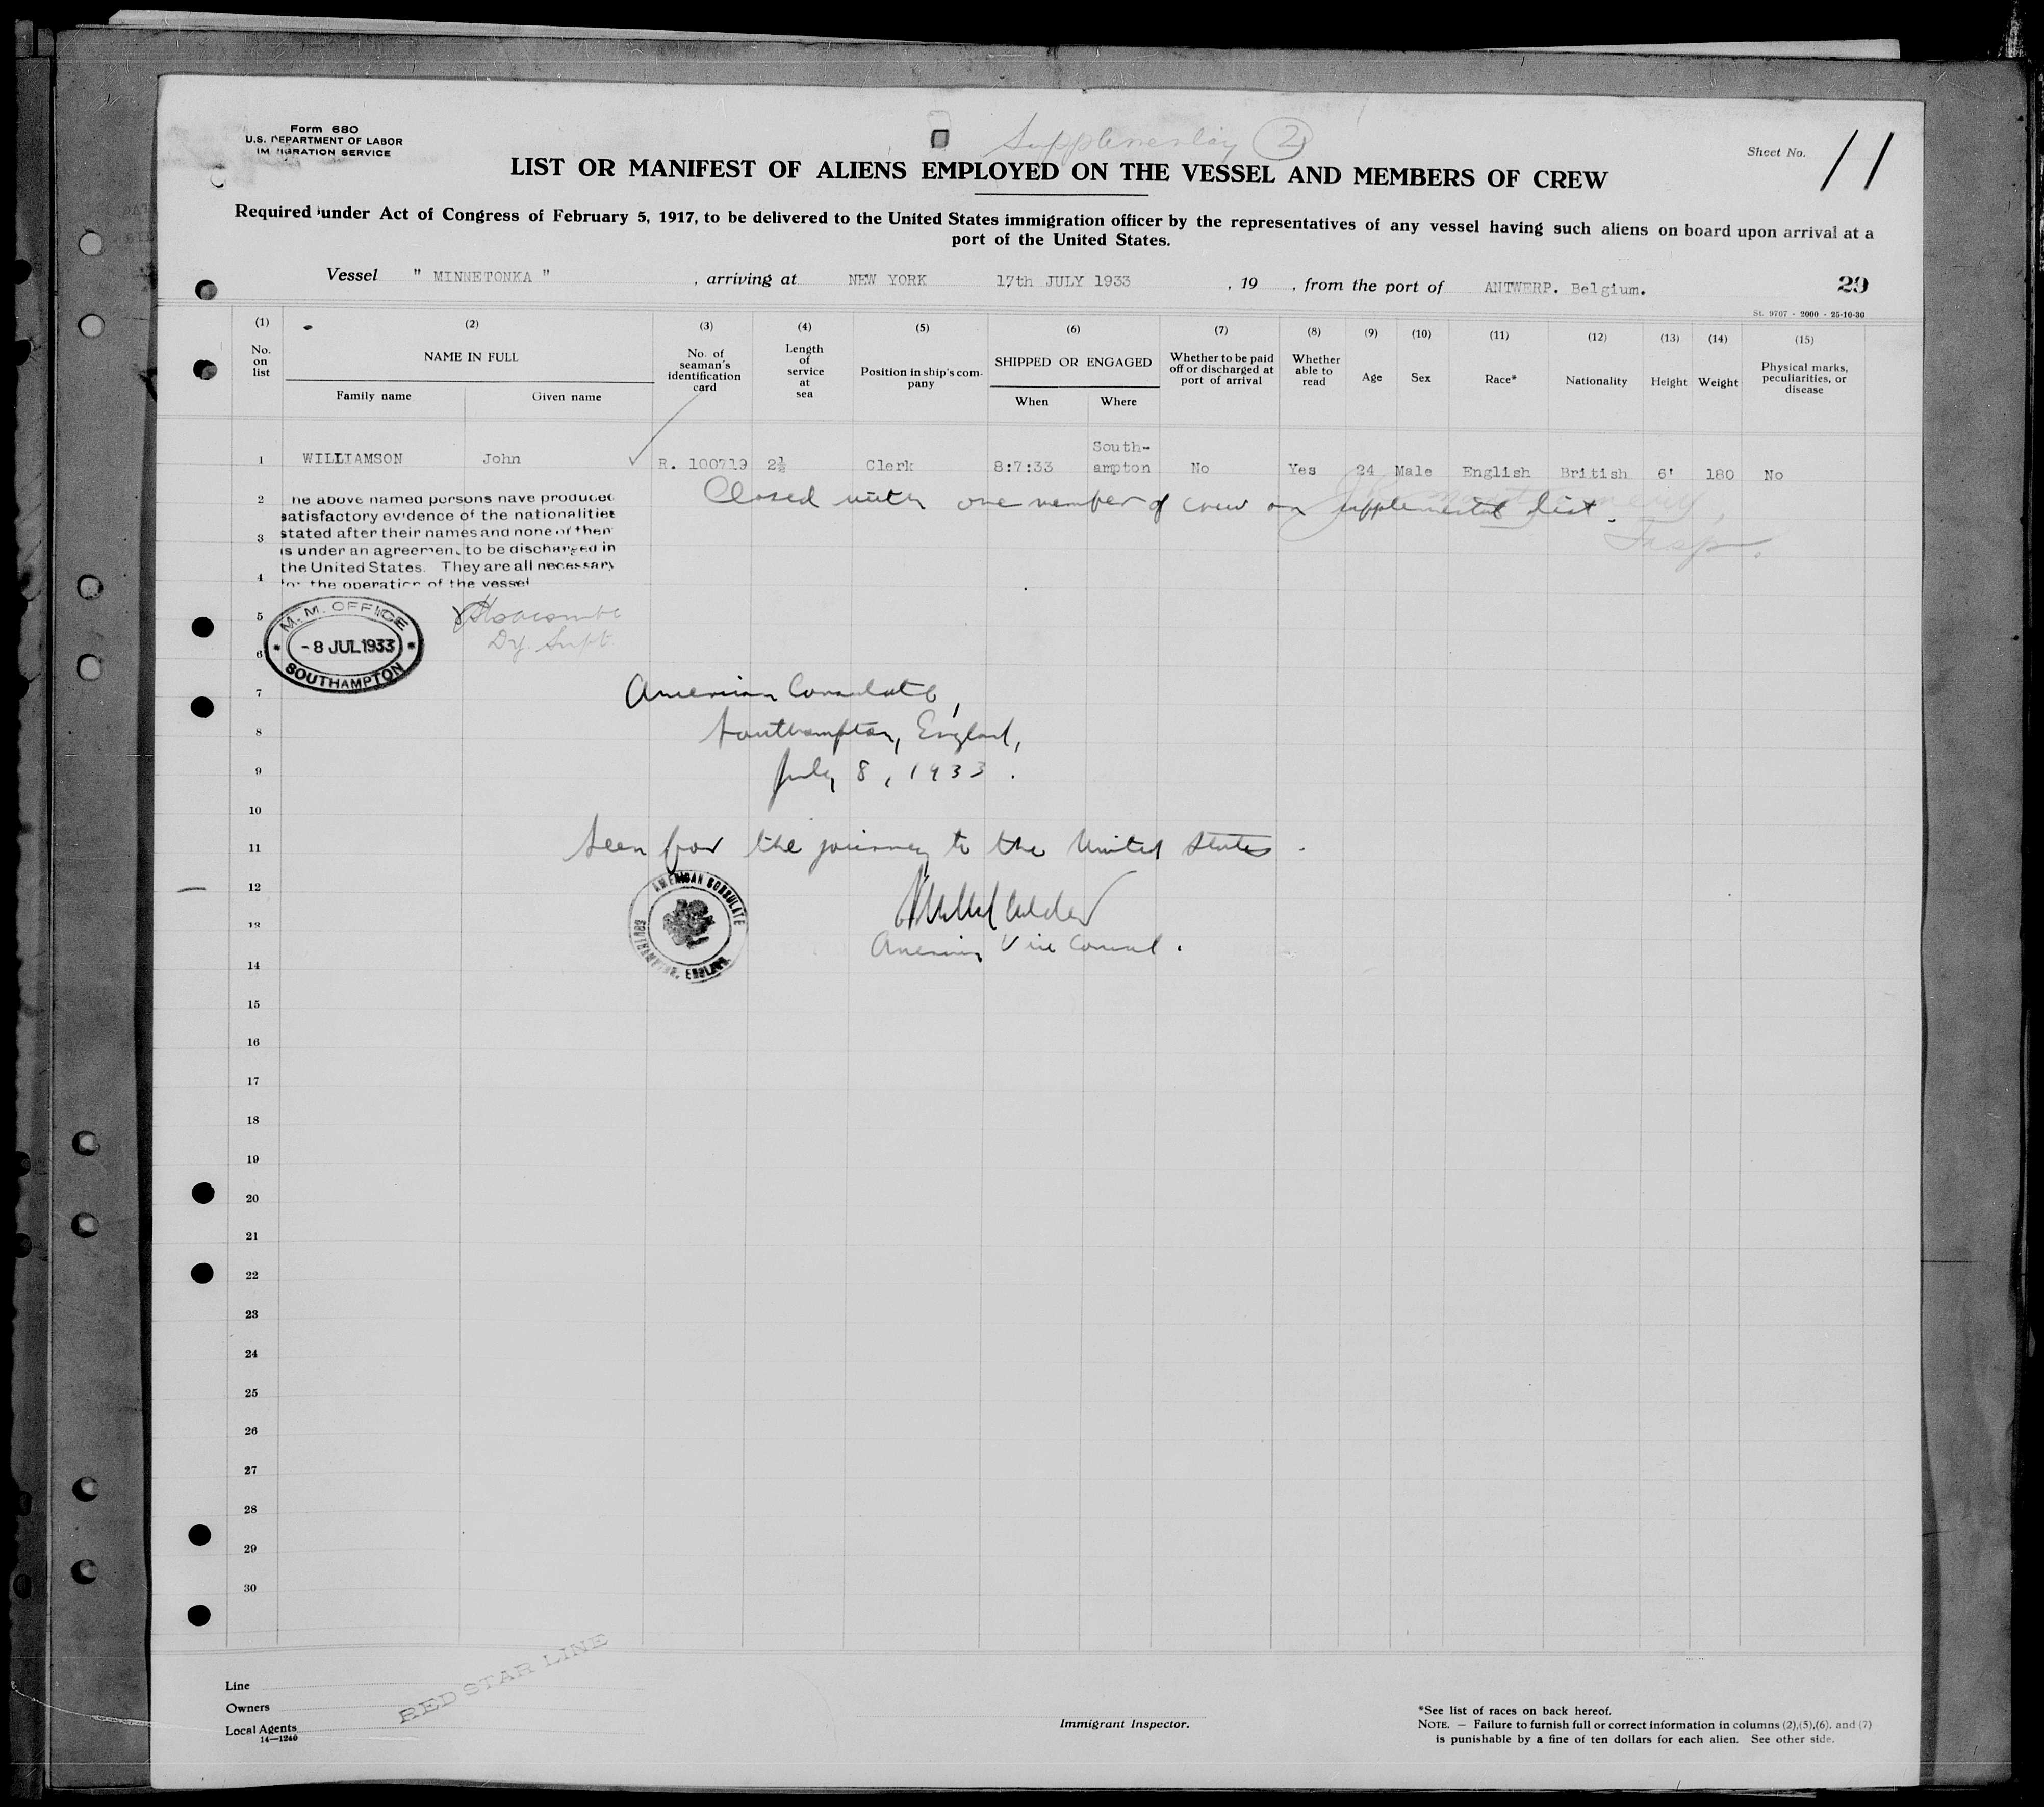 Form 680
U.S. DEPARTMENT OF LABOR
IMMIGRATION SERVICE
Supplementary 2
Sheet No. 11
LIST OR MANIFEST OF ALIENS EMPLOYED ON THE VESSEL AND MEMBERS OF CREW
Required under Act of Congress of February 5, 1917, to be delivered to the United States immigration officer by the representatives of any vessel having such aliens on board upon arrival at a
port of the United States.
Vessel " MINNETONKA " , arriving at NEW YORK 17th JULY 1933 , 19 , from the port of ANTWERP. Belgium. 29
St. 9707 - 2000 - 25-10-30
(1) (2) (3) (4) (5) (6) (7) (8) (9) (10) (11) (12) (13) (14) (15)
No. on list
NAME IN FULL
Family name
Given name
No. of seaman's identification card
Length of service at sea
Position in ship's com-pany
SHIPPED OR ENGAGED
When
Where
Whether to be paid off or discharged at port of arrival
Whether able to read
Age
Sex
Race*
Nationality
Height
Weight
Physical marks, peculiarities, or disease
1 WILLIAMSON John R. 100719 2½ Clerk 8:7:33 South-ampton No Yes 24 Male English British 6' 180 No
2
Closed with one member of crew on supplemental list.
Insp.
he above named persons have produced
satisfactory evidence of the nationalities
3
stated after their names and none of them
is under an agreement to be discharged in
the United States. They are all necessary
4
for the operation of the vessel
5
M. M. OFFICE
- 8 JUL 1933
SOUTHAMPTON
Dy. Supt.
6
7
American Consulate,
8
Southampton, England,
9
July 8, 1933.
10
11
Seen for the journey to the United States.
12
AMERICAN CONSULATE
SOUTHAMPTON, ENGLAND.
13
American Vice Consul.
14
15
16
17
18
19
20
21
22
23
24
25
26
27
28
29
30
RED STAR LINE
Line
Owners
Local Agents
14—1240
Immigrant Inspector.
*See list of races on back hereof.
NOTE. — Failure to furnish full or correct information in columns (2),(5),(6), and (7)
is punishable by a fine of ten dollars for each alien. See other side.